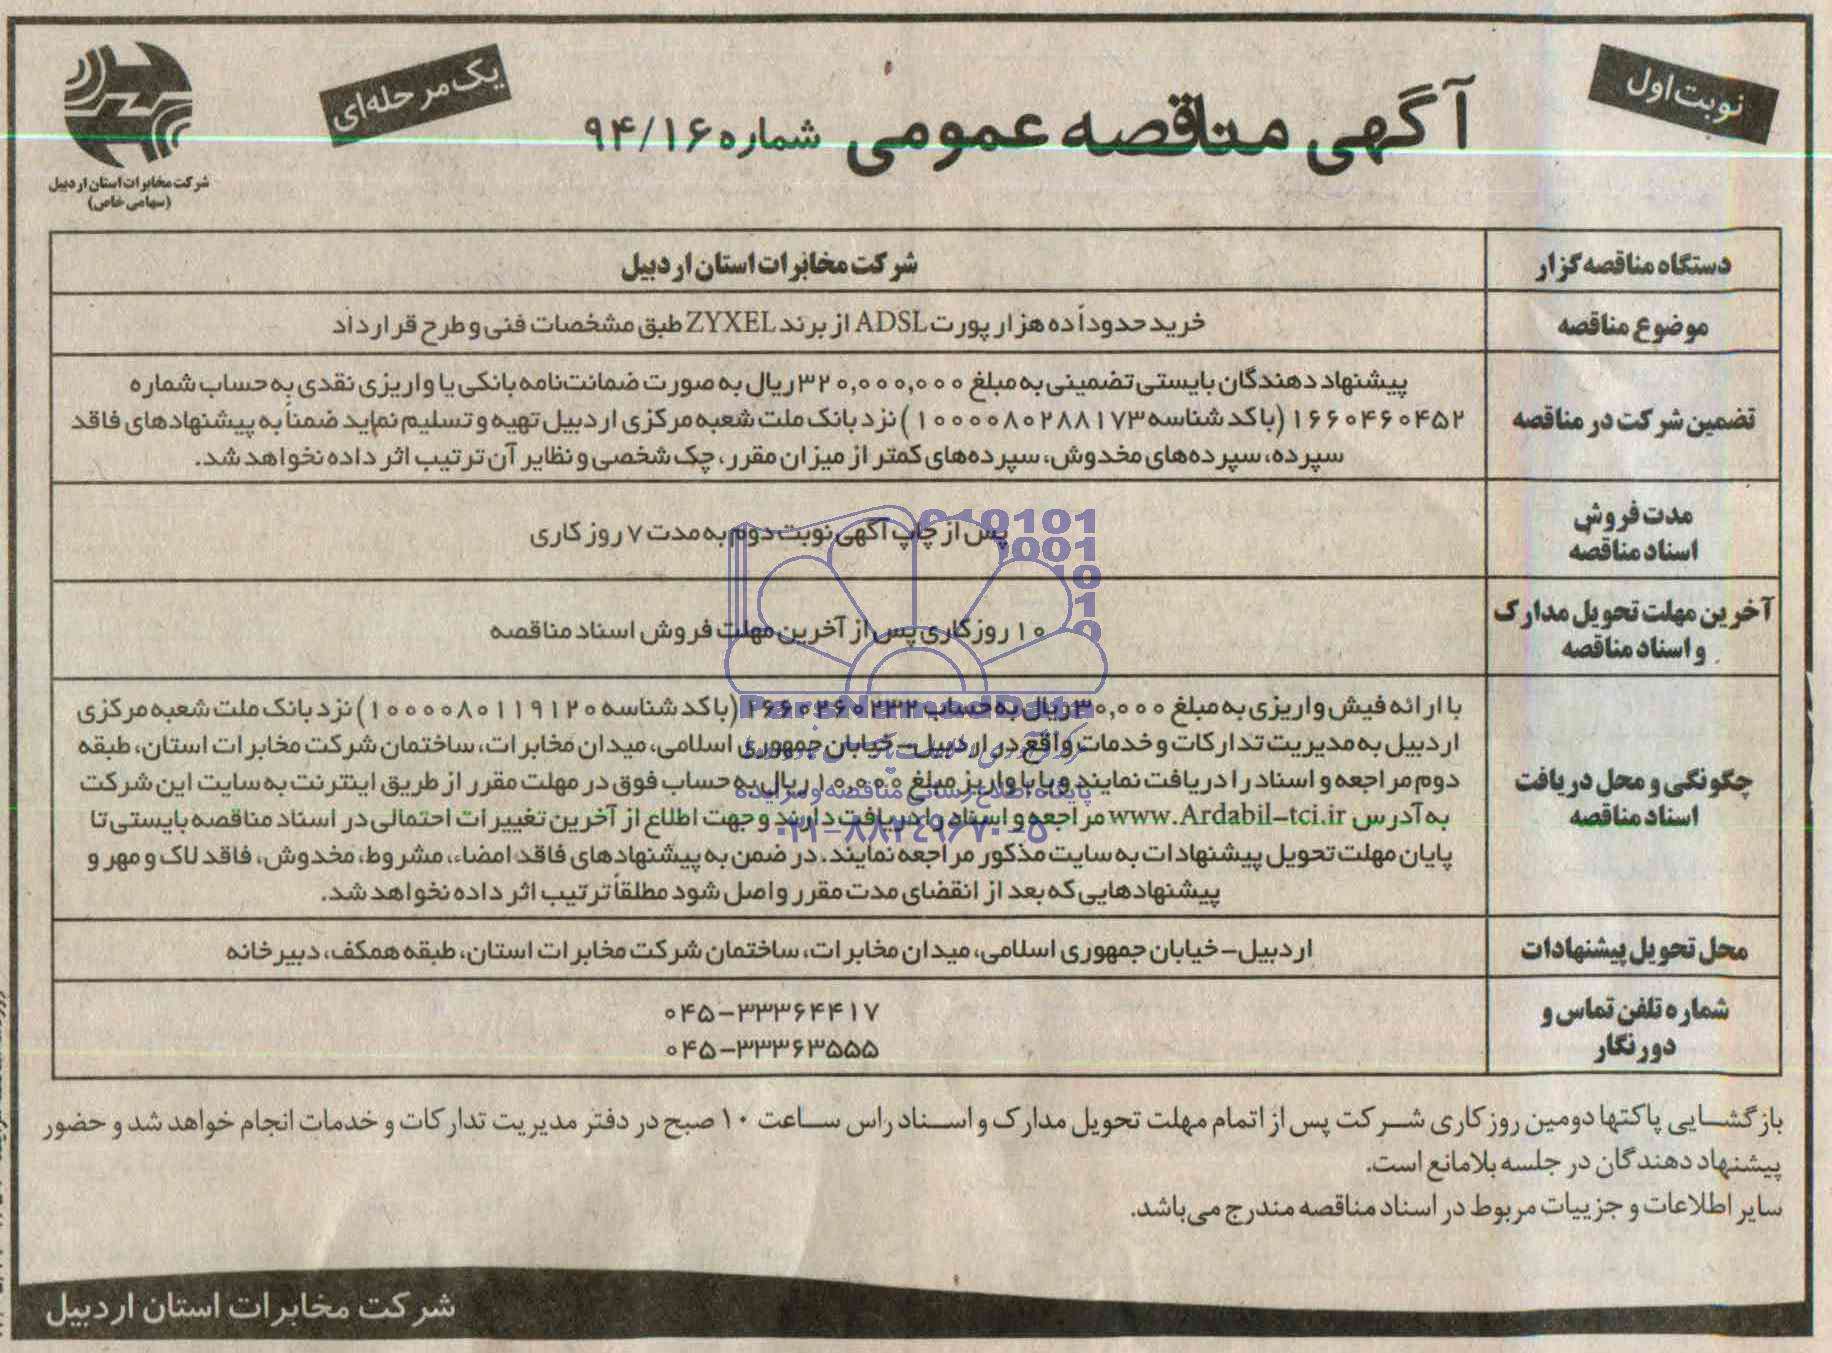 نوبت اول
آگهی مناقصه عمومی شماره ۹۴/۱۶
یک مرحله‌ای
شرکت مخابرات استان اردبیل
(سهامی خاص)
دستگاه مناقصه گزار
شرکت مخابرات استان اردبیل
موضوع مناقصه
خرید حدوداً ده هزار پورت ADSL از برند ZYXEL طبق مشخصات فنی و طرح قرارداد
تضمین شرکت در مناقصه
پیشنهاد دهندگان بایستی تضمینی به مبلغ ۳۲۰,۰۰۰,۰۰۰ ریال به صورت ضمانت‌نامه بانکی یا واریزی نقدی به حساب شماره
۱۶۶۰۴۶۰۴۵۲ (با کد شناسه ۱۰۰۰۰۸۰۲۸۸۱۷۳) نزد بانک ملت شعبه مرکزی اردبیل تهیه و تسلیم نماید ضمناً به پیشنهادهای فاقد
سپرده، سپرده‌های مخدوش، سپرده‌های کمتر از میزان مقرر، چک شخصی و نظایر آن ترتیب اثر داده نخواهد شد.
مدت فروش
اسناد مناقصه
پس از چاپ آگهی نوبت دوم به مدت ۷ روز کاری
آخرین مهلت تحویل مدارک
و اسناد مناقصه
۱۰ روز کاری پس از آخرین مهلت فروش اسناد مناقصه
چگونگی و محل دریافت
اسناد مناقصه
با ارائه فیش واریزی به مبلغ ۳۰,۰۰۰ ریال به حساب (با کد شناسه ۱۰۰۰۰۸۰۱۱۹۱۲۰) نزد بانک ملت شعبه مرکزی
اردبیل به مدیریت تدارکات و خدمات واقع در اردبیل – خیابان جمهوری اسلامی، میدان مخابرات، ساختمان شرکت مخابرات استان، طبقه
دوم مراجعه و اسناد را دریافت نمایند و یا با واریز مبلغ ۱۰,۰۰۰ ریال به حساب فوق در مهلت مقرر از طریق اینترنت به سایت این شرکت
به آدرس www.Ardabil-tci.ir مراجعه و اسناد را دریافت دارند و جهت اطلاع از آخرین تغییرات احتمالی در اسناد مناقصه بایستی تا
پایان مهلت تحویل پیشنهادات به سایت مذکور مراجعه نمایند. در ضمن به پیشنهادهای فاقد امضاء، مشروط، مخدوش، فاقد لاک و مهر و
پیشنهادهایی که بعد از انقضای مدت مقرر واصل شود مطلقاً ترتیب اثر داده نخواهد شد.
محل تحویل پیشنهادات
اردبیل – خیابان جمهوری اسلامی، میدان مخابرات، ساختمان شرکت مخابرات استان، طبقه همکف، دبیرخانه
شماره تلفن تماس و
دورنگار
۰۴۵-۳۳۳۶۴۴۱۷
۰۴۵-۳۳۳۶۳۵۵۵
بازگشایی پاکتها دومین روز کاری شرکت پس از اتمام مهلت تحویل مدارک و اسناد راس ساعت ۱۰ صبح در دفتر مدیریت تدارکات و خدمات انجام خواهد شد و حضور
پیشنهاد دهندگان در جلسه بلامانع است.
سایر اطلاعات و جزییات مربوط در اسناد مناقصه مندرج می‌باشد.
شرکت مخابرات استان اردبیل
ParsNamadData
پایگاه اطلاع رسانی مناقصه و مزایده
۰۲۱-۸۸۳۴۹۶۷۰-۵